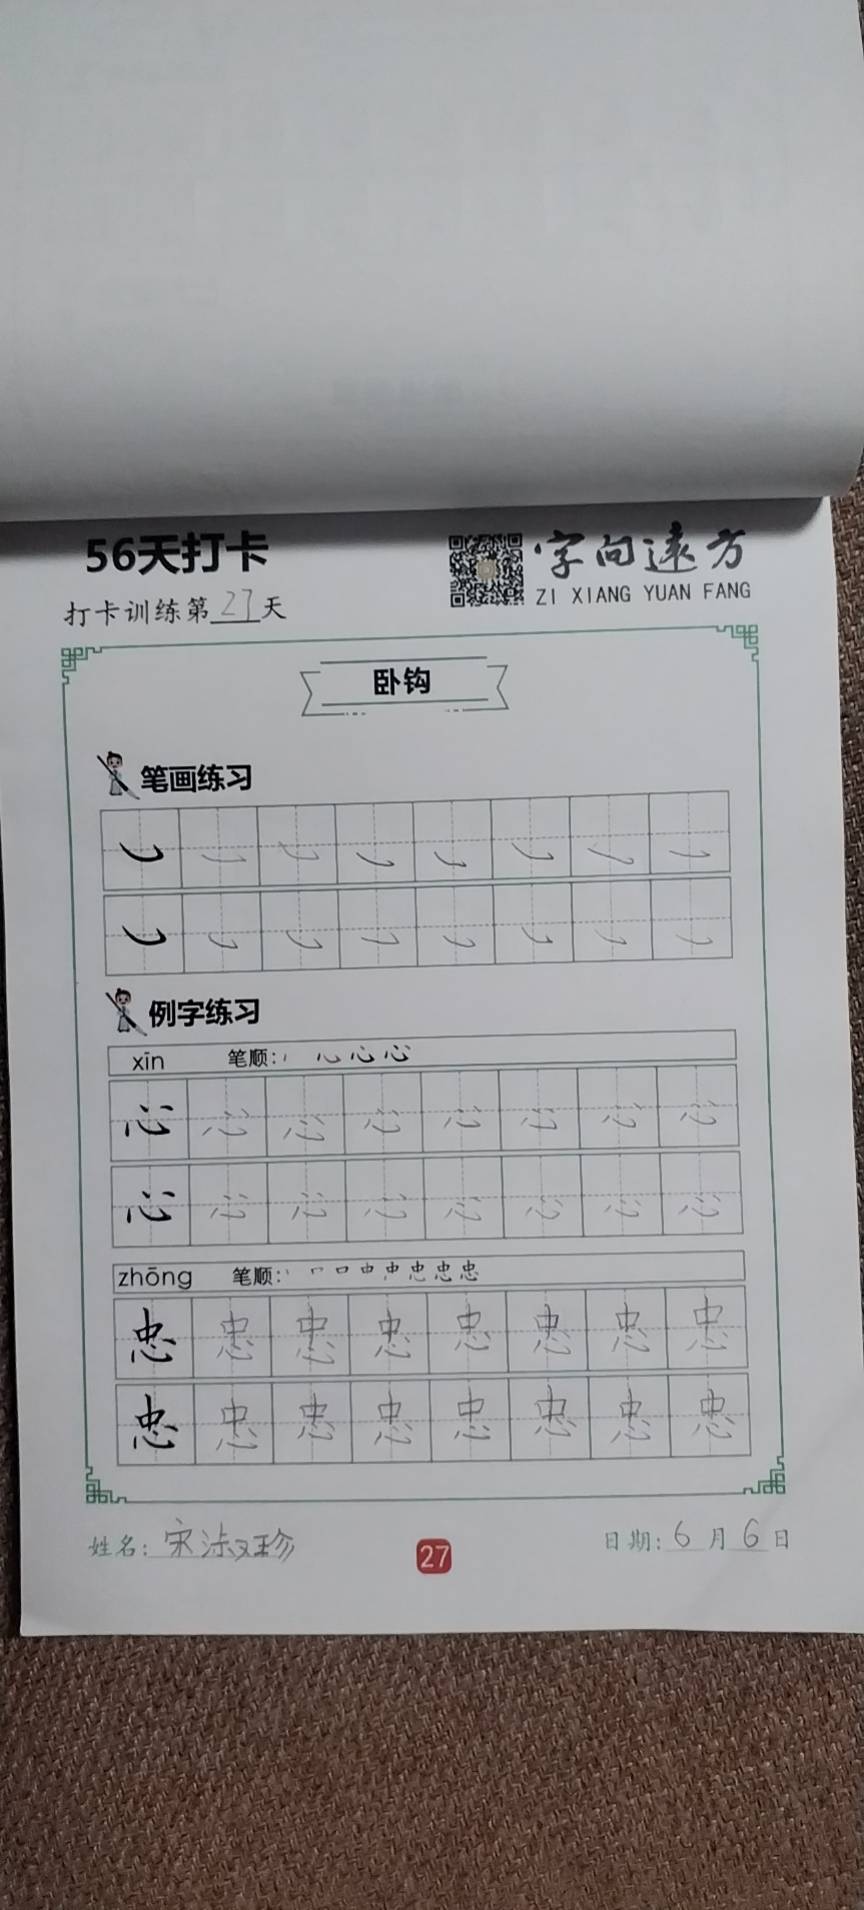 56天打卡
字向遠方
ZI XIANG YUAN FANG
打卡训练第27天
卧钩
笔画练习
例字练习
xīn 笔顺: 心 心 心
心 心 心 心 心 心 心 心
心 心 心 心 心 心 心 心
zhōng 笔顺: 口 忠 忠 忠
忠 忠 忠 忠 忠 忠 忠 忠
忠 忠 忠 忠 忠 忠 忠 忠
姓名: 宋淑珍
27
日期: 6月6日